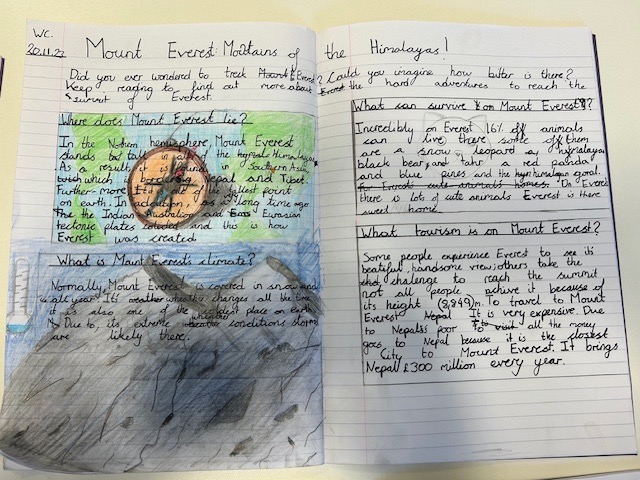 WC.
20.11.23
Mount Everest: Moutains of the Himalayas!
Did you ever wondered to treck Mount Everest? Could you imagine how bitter is there?
Keep reading to find out more about Everest the hard adventures to reach the
summit of Everest.
Where does Mount Everest lie?
In the Nothern hemisphere, Mount Everest
stands tall in the Himalayas.
As a result it is found in Southern Asia
which Nepal and Tibet.
Further-more It is one of the tallest point
on earth. In adution, a long time ago
The the Indian Australian and Eurasian
tectonic plates colided and this is how
Everest was created.
What is Mount Everest's climate?
Normally, Mount Everest is covered in snow and
all year. It's weather changes all the time
it is also one of the place on earth
Due to, its extreme conditions
are likely there.
What can survive on Mount Everest?
Incredibly on Everest 16% off animals
can live there some off them
are a snow leopard a Himalayan
black bear, and tahr a red panda
and blue pines and the
for Everest cute animals homes. On
there is lots of cute animals Everest is there
sweet home.
What tourism is on Mount Everest?
Some people experience Everest to see its
beatiful, handsome view, others take the
chalenge to reach the summit
not all people achive it because of
its height (8,849)m. To travel to Mount
Everest Nepal It is very expensive. Due
to Nepal's poor all the money
goes to Nepal because it is the closest
City to Mount Everest. It brings
Nepal £300 million every year.